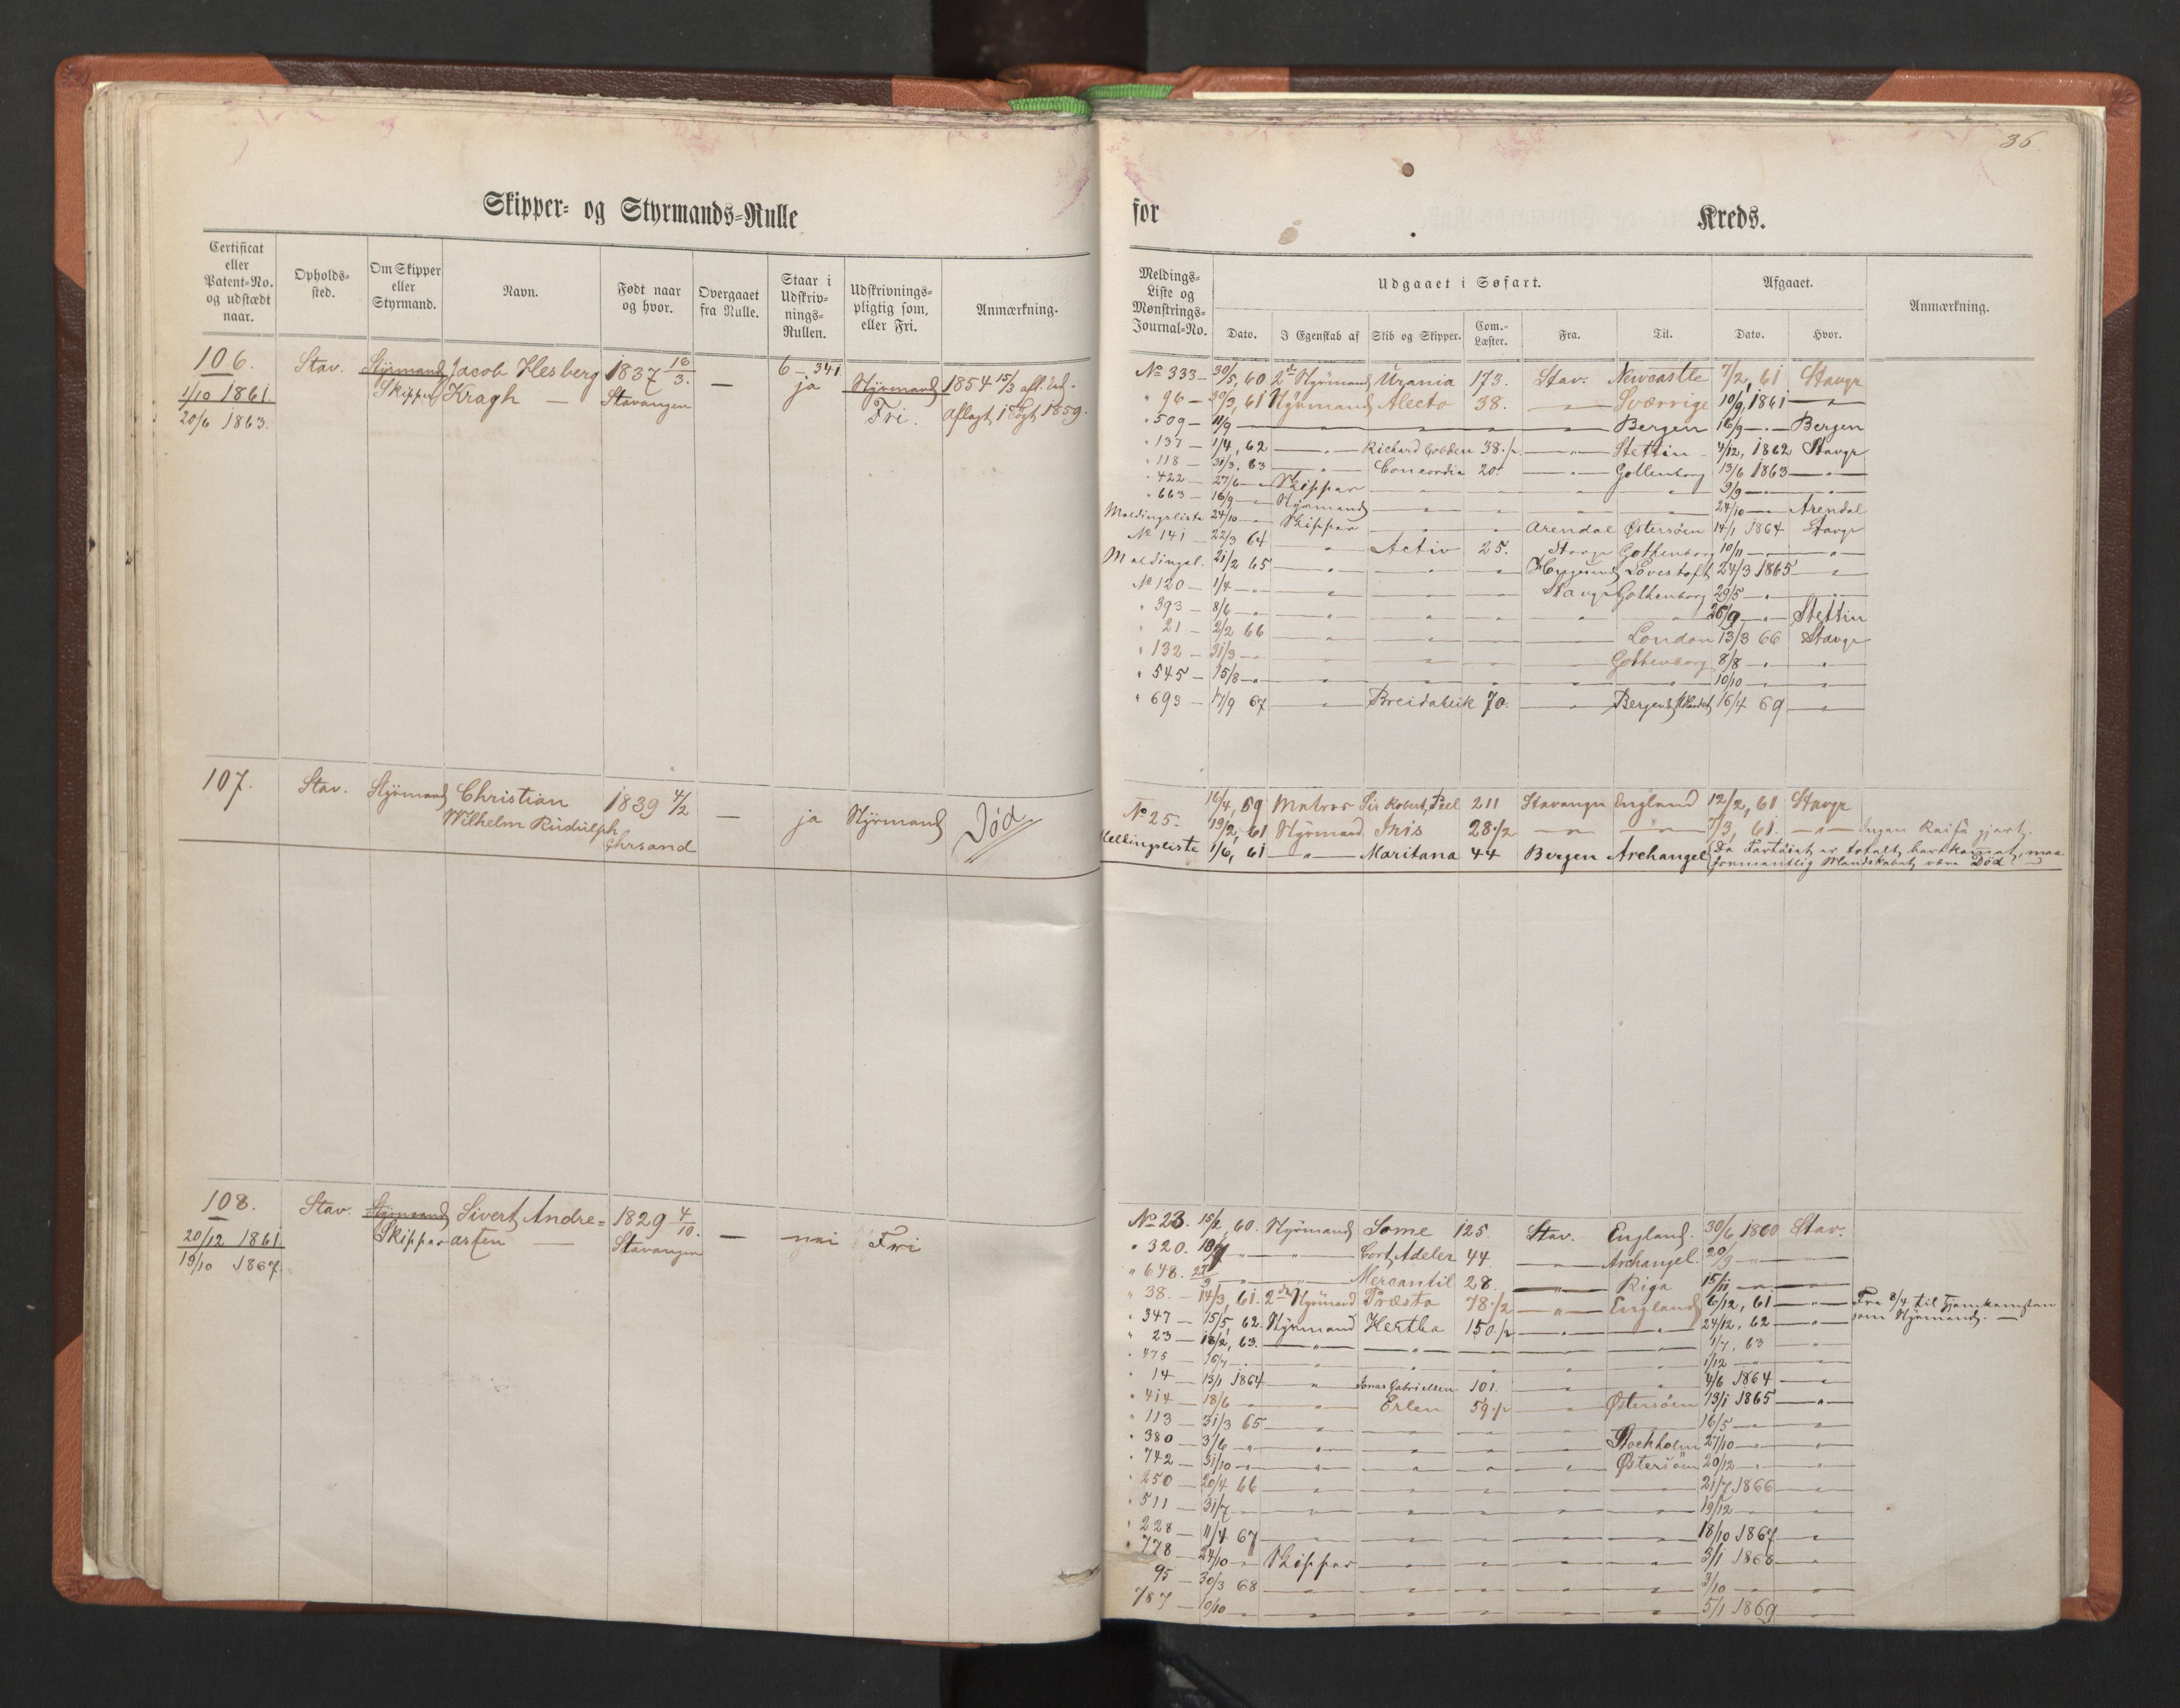 36.
Skipper- og Styrmands-Rulle
for Kreds.
Certificat eller Patent-No. og udstædt naar.
Opholds-sted.
Om Skipper eller Styrmand.
Navn.
Født naar og hvor.
Overgaaet fra Rulle.
Staar i Udskriv-nings-Rullen.
Udskrivnings-pligtig som, eller Fri.
Anmærkning.
Meldings-Liste og Mønstrings-Journal-No.
Udgaaet i Søfart.
Dato.
I Egenskab af
Skib og Skipper.
Com.-Læster.
Fra.
Til.
Afgaaet.
Dato.
Hvor.
Anmærkning.
106. Stav. Styrmand Jacob Hesberg 1837 16/3. — 6 – 341 Styrmand 1854 15/3 afl. Ed.
1/10 1861. Skipper Kragh — Stavanger ja Fri. aflagt 1 Togt 1859.
20/6 1863.
No 333 – 30/5, 60 2den Styrmand Urania 173. Stav: Newcastle 7/2, 61 Stavgr
" 96 – 30/3, 61 Styrmand Alecto 38. — " — Sværrige 10/9, 1861 — " —
" 509 – 11/9 — " — Bergen 16/9 — " — Bergen
" 137 – 1/4, 62 — " — Richard Cobden 38 1/2 — " — Stettin – 4/12, 1862 Stavgr
" 118 – 31/3. 63 — " — Concordia 20. — " — Gottenborg 13/6 1863 — " —
" 422 – 27/6 – " Skipper — " — " — " — " — 9/9 — " — " —
" 663 – 16/9 – " Styrmand — " — " — " — " — 24/10 — " Arendal
Meldingsliste 24/10 – " Skipper — " — " — Arendal Østersøen 14/1 1864 Stavgr
No 141 – 22/3 64 — " — Activ 25. Stavgr Gothenborg 10/11 — " — " —
Meldingsl. 21/2 65 — " — " — " — Lovestoft 24/3 1865 — " —
No 120 – 1/4 – " — " — " — " — Stavgr Gothenborg 29/5 — " — " —
" 393 – 8/6 – " — " — " — " — " — " — 26/9 — " — Stettin
" 21 – 2/2 66 — " — " — " — " — London 13/3 66 Stavgr
" 132 – 31/3 – " — " — " — " — " — Gothenborg 8/8 — " — " —
" 545 – 15/8 – " — " — " — " — " — " — 10/10 — " — " —
" 693 – 17/9 67 — " — Breidablik 70. — " — Bergen 16/4 69 — " —
107. Stav. Styrmand Christian 1839 4/2 — ja Styrmand Død
Wilhelm Rudulph Chrsand
16/4, 59 Matros Sir Robert Peel 211 Stavanger England 12/2, 61 Stavgr
No 25. 19/2, 61 Styrmand Iris 28 1/2 — " — " — 7/3, 61. — " — Ingen Reise gjort.
Meldingsliste 1/6, 61 — " — Maritana 44 Bergen Archangel Da Fartøiet er totalt bortkommet, maa
formentlig Mandskabet være Død. —
108. Stav. Styrmand Sivert Andre= 1829 4/10. — nei Fri
20/12 1861. Skipper asen — Stavanger
19/10 1867.
No 23. 15/2, 60. Styrmand Some 125. Stav. England. 30/6 1860 Stav.
" 320. — " — Cort Adeler 44. — " — Archangel. 20/9 — " — " —
" 648. — " — Mercantil 28. — " — Riga 15/11 — " — " —
" 38. – 14/3, 61. 2den Styrmand Præsto 78 1/2 — " — England 6/12, 61 — " — Fra 8/4 til Hjemkomsten
som Styrmand. —
" 347 – 15/5 62. Styrmand Hertha 150 1/2 — " — " — 24/12, 62 — " —
" 23 – 18/2, 63. — " — " — " — " — 1/7, 63 — " —
" 475 – 16/7 – " — " — " — " — " — 1/12 — " — " —
" 14 – 13/1 1864 — " — Jonas Gabrielsen 101. — " — " — 4/6 1864 — " —
" 414 – 18/6 – " — " — Erlen 59 1/2 — " — Østersøen 13/1 1865 — " —
" 113 – 31/3 65 — " — " — " — " — " — 16/5 — " — " —
" 380 – 3/6 – " — " — " — " — " — Stockholm 27/10 — " — " —
" 742 – 31/10 – " — " — " — " — " — Østersøen 20/12 — " — " —
" 250 – 20/4 66 — " — " — " — " — " — 21/7 1866 — " —
" 511 – 31/7 – " — " — " — " — " — " — 19/12 — " — " —
" 228 – 11/4 67 — " — " — " — " — " — 18/10 1867 — " —
" 778 – 24/10 – " Skipper — " — " — " — " — 3/1 1868 — " —
95 – 30/3 68 — " — " — " — " — " — 3/10 — " — " —
787 – 10/10 – " — " — " — " — " — " — 5/1 1869 — " —